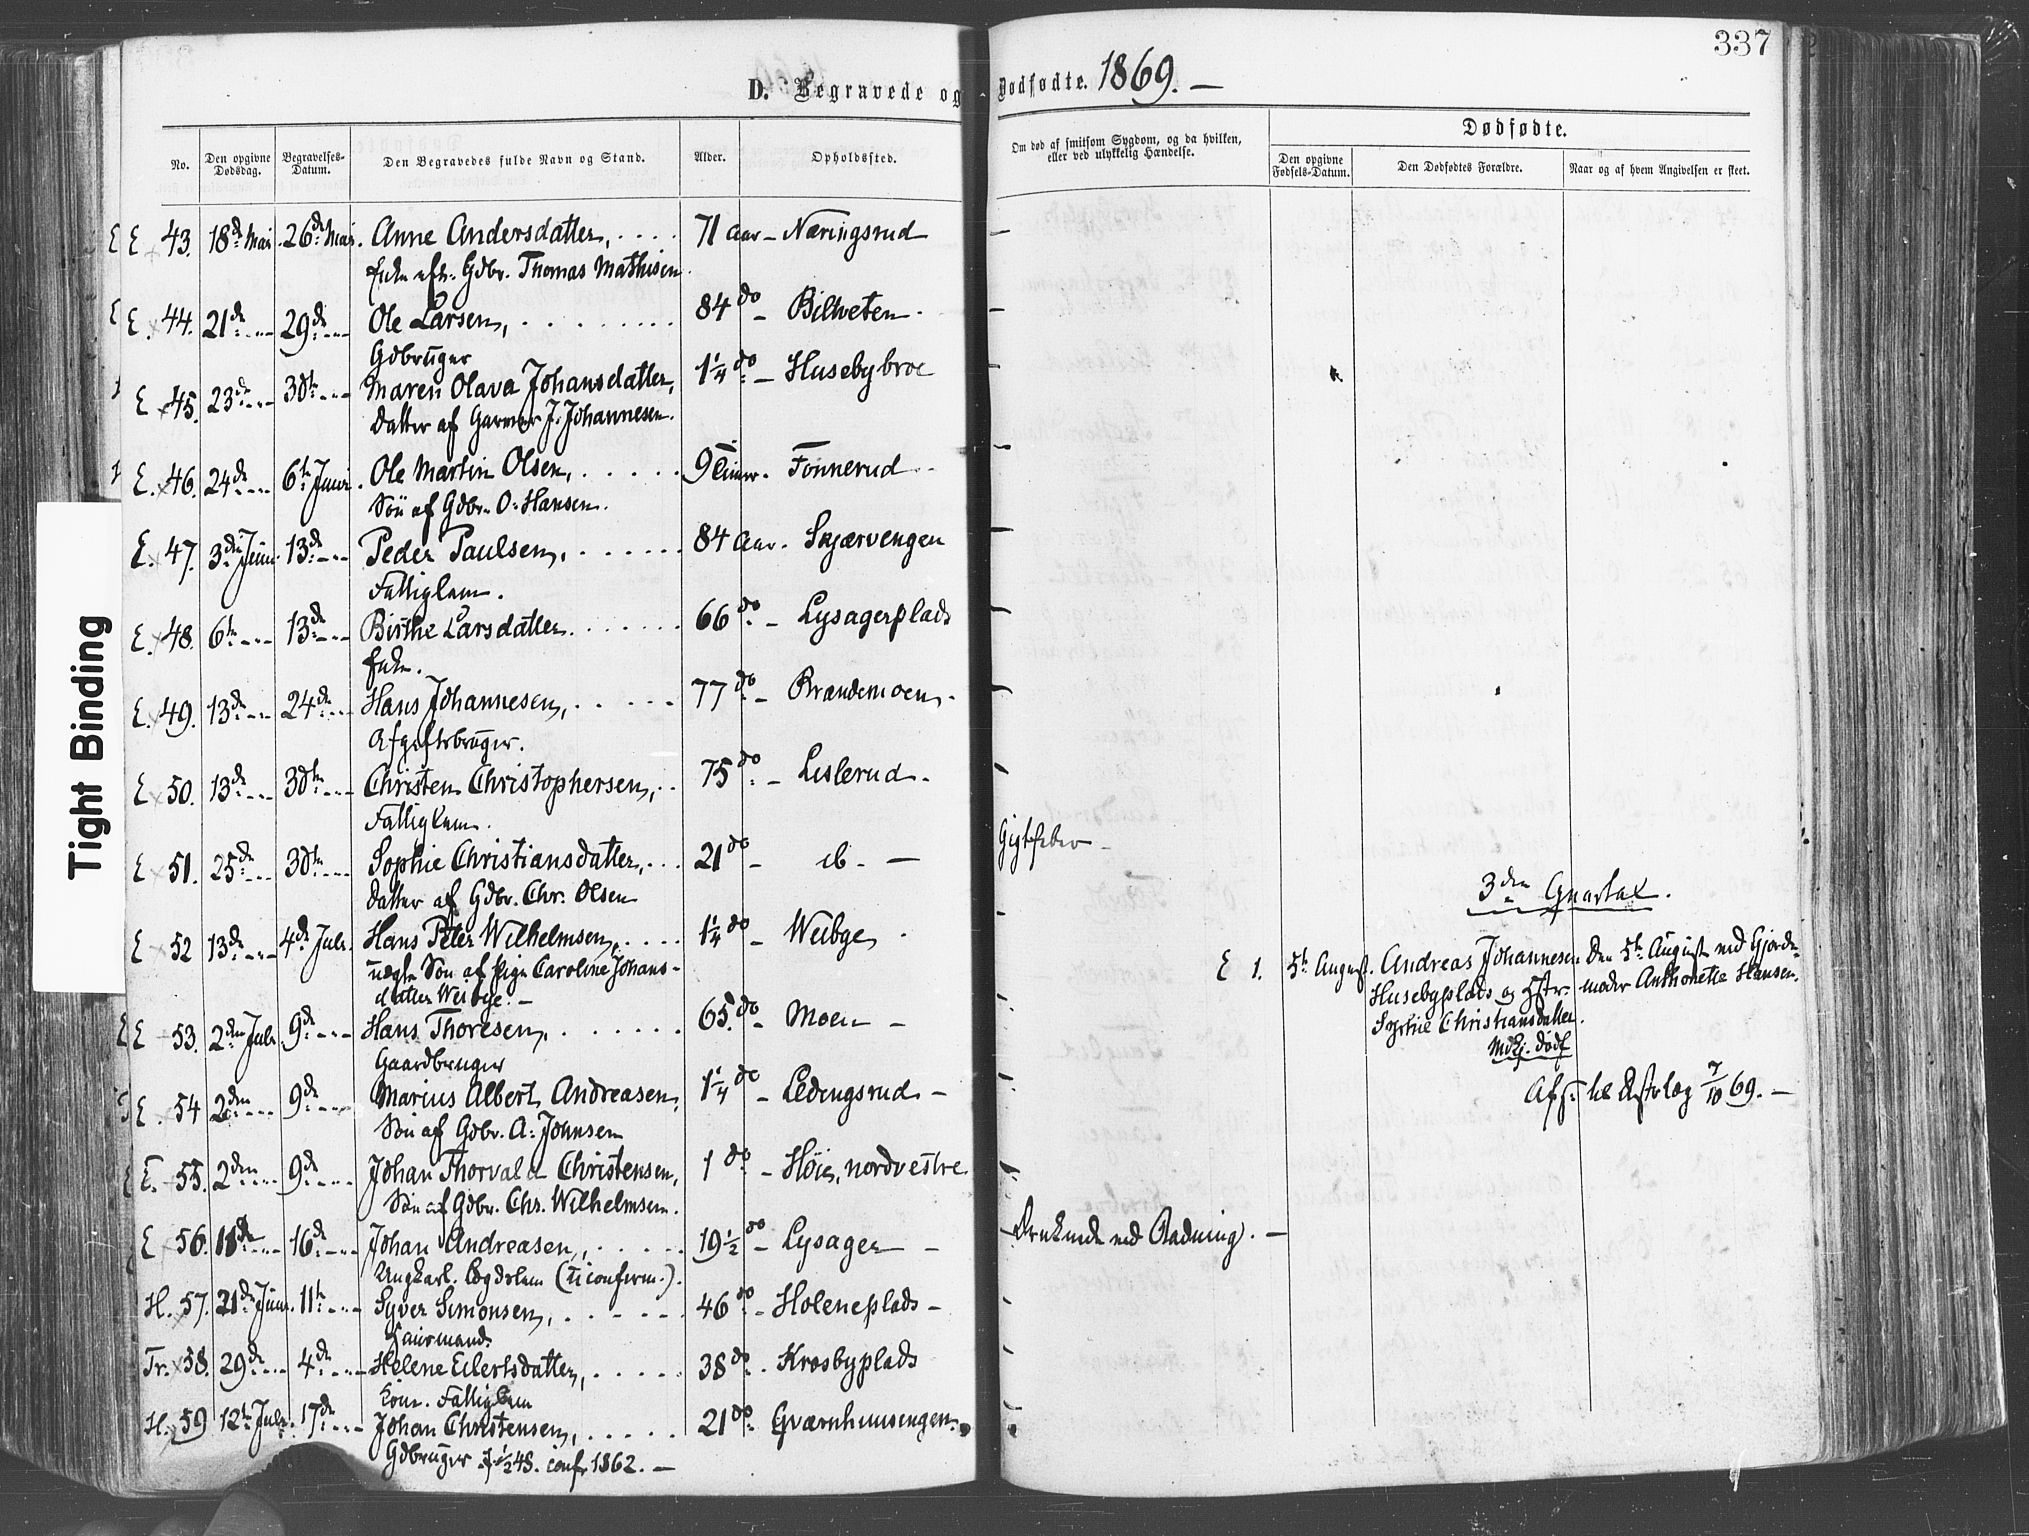 337
D. Begravede og Dødfødte. 1869. —
No. Den opgivne Dødsdag. Begravelses-Datum. Den Begravedes fulde Navn og Stand. Alder. Opholdssted. Om død af smitsom Sygdom, og da hvilken, eller ved ulykkelig Hændelse.
Dødfødte.
Den opgivne Fødsels-Datum. Den Dødfødtes Forældre. Naar og af hvem Angivelsen er skeet.
E E 43. 18de Mai. 26de Mai. Anne Andersdatter, . . . . 71 Aar - Næringsrud —
Enke eft. Gdbr. Thomas Mathisen
E E. 44. 21de -"- 29de -"- Ole Larsen, . . . . . . . . 84 do - Bilitveten. —
Gdbruger
E. 45. 23de -"- 30te -"- Maren Olava Johansdatter, 1¼ do - Husebybroe —
Datter af Garver J. Johannesen.
E. 46. 24de -"- 6te Juni. Ole Martin Olsen, . . . . . 9 Timer. Fonnerud —
Søn af Gdbr. O. Hansen.
E. 47. 3die Juni. 13de -"- Peder Paulsen, . . . . . . 84 Aar. Skjærvengen —
Fattiglem.
E. 48. 6te -"- 13de -"- Birthe Larsdatter. . . . . . . 66 do - Lysagerplads —
Enke.
E. 49. 13de -"- 24de -"- Hans Johannesen, . . . . . 77 do - Brændemoen. —
Afgiftsbruger.
E 50. 13de -"- 30te -"- Christen Christophersen, . . 75 do - Lislerud. —
Fattiglem.
E 51. 25de -"- 30te -"- Sophie Christiansdatter, . . . 21 do - ib - — Gigtfeber —
Datter af Gdbr. Chr. Olsen
E 52 13de -"- 4de Juli. Hans Peter Wilhelmsen, . . . . 1¼ do - Weibye —
uægte Søn af Pige Caroline Johans-
datter Weibye. —
E E 53. 2den Juli. 9de -"- Hans Thoresen, . . . . . . . 65. do - Moen — —
Gaardbruger
E. 54 2den -"- 9de -"- Marius Albert Andreasen, 1¼ do - Ledingsrud — —
Søn af Gdbr. A. Johnsen
E. 55. 2den -"- 9de -"- Johan Thorvald Christensen, 1 do - Høie, nordvestre —
Søn af Gdbr. Chr. Wilhelmsen.
E 56. 11de -"- 16de -"- Johan Andreasen, . . . . . 19½ do - Lysager — Druknede ved Badning. —
Ungkarl. Lægdslem (u. confirm.).
H. 57. 21de Juni. 11te -"- Syver Simonsen, . . . . . . 46 do - Holeneplads — —
Huusmand.
Tr. 58. 29de -"- 4de -"- Helene Eilertsdatter, . . . . . 38 do. Krosbyplads —
Kone. Fattiglem
H. 59 12te Juli. 17de -"- Johan Christensen, . . . . . 21 do. Qværnhuusengen.
Gdbruger f. ½48. conf. 1862. —
3die Qvartal.
E 1. 5te August. Andreas Johannesen Den 5te August ved Gjorde-
Husebyplads og Hstr. moder Anthonette Hansen.
Sophie Christiansdatter.
Mdkj. dødf
Afs. til Østvlæg 7/10 69. —
Tight Binding